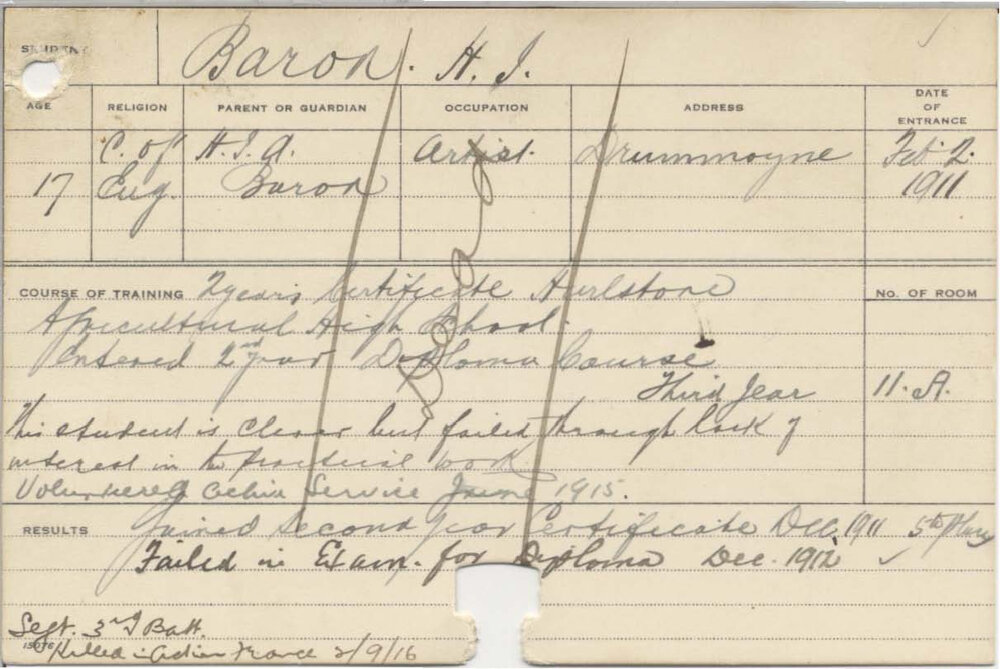 STUDENT
Baron. H. J.
AGE
RELIGION
PARENT OR GUARDIAN
OCCUPATION
ADDRESS
DATE
OF
ENTRANCE
17
C. of
Eng.
H. J. A.
Baron
Artist.
Drummoyne
Feb 2.
1911
COURSE OF TRAINING 2 years Certificate Hurlstone
Agricultural High School.
Entered 2nd year Diploma Course
Third Year
No. OF ROOM
11. A.
This student is clever but failed through lack of
interest in the practical work
Volunteered Active Service June 1915.
Deceased
RESULTS
Gained Second Year Certificate Dec. 1911 5th place
Failed in Exam. for Diploma Dec. 1912
Segt. 3rd Batt.
15076
Killed in action France 2/9/16